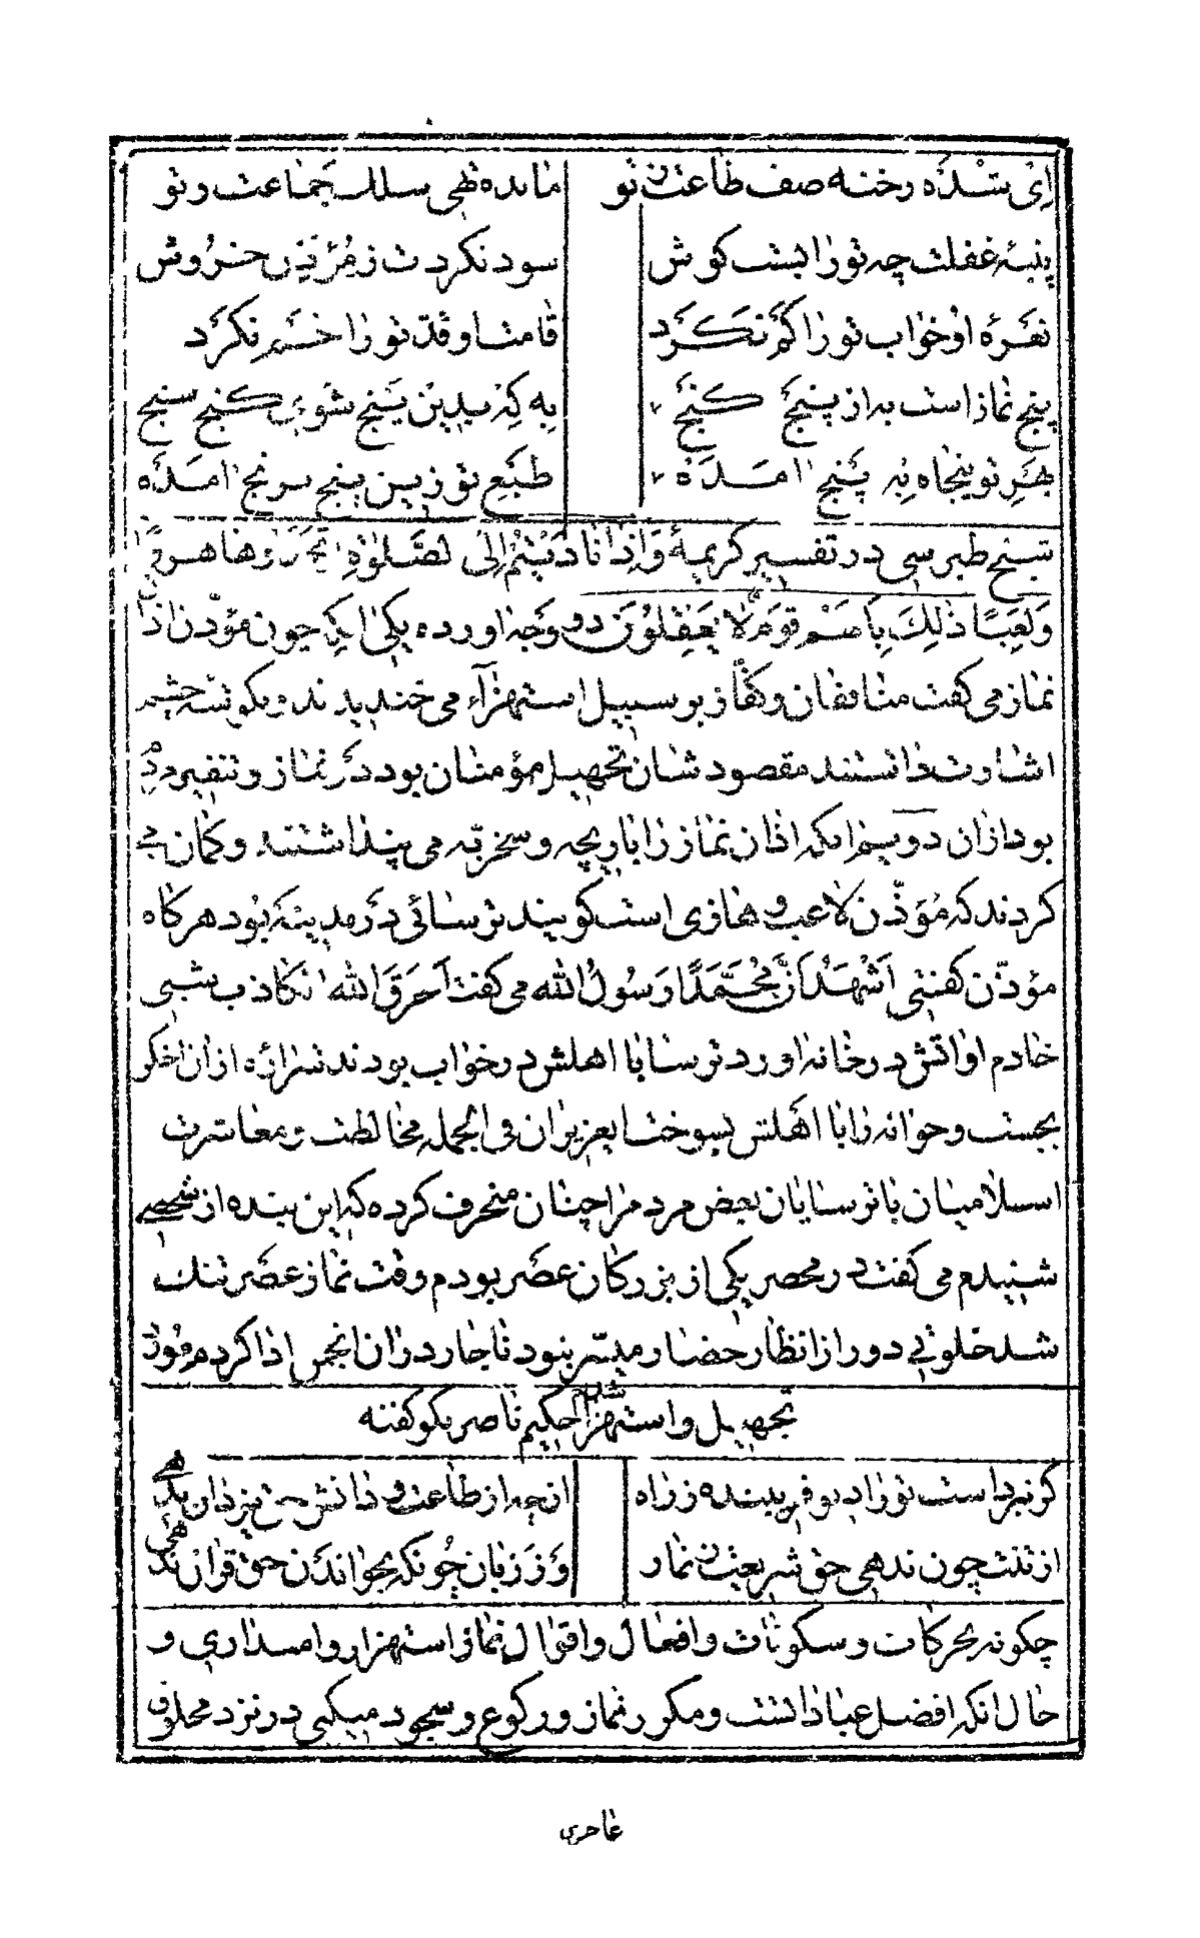 ای شده رخنه صف طاعت ز تو مانده تهی سلک جماعت ز تو
پنبهٔ غفلت چه تو را بست گوش سود نکردت ز مؤذن خروش
نعرهٔ او خواب تو را کم نکرد قامت او قد تو را خم نکرد
پنج نماز است به از پنج گنج به که بدین پنج شوی گنج سنج
بهر تو پنجاه به پنج آمده طبع تو زین پنج برنج آمده
شیخ طبرسی در تفسیر کریمهٔ وَاِذا نادَیْتُمْ اِلَی الصَّلوٰةِ اتَّخَذُوها هُزُوًا
وَلَعِبًا ذٰلِكَ بِاَنَّهُمْ قَوْمٌ لا یَعْقِلُونَ دو وجه آورده یکی آنکه چون مؤذن اذان
نماز می گفت منافقان و کفار بر سبیل استهزآء می خندیدند و بگوشهٔ چشم
اشارت مقصود شان تجهیل مؤمنان بود در نماز و تنفیر مردم
بود از آن دویم آنکه اذان نماز را بازیچه و سخریه می پنداشتند و گمان می
کردند که مؤذن لاعب و هازی است گویند ترسائی در مدینه بود هرگاه
مؤذن گفتی اَشْهَدُ اَنَّ مُحَمَّدًا رَسُولُ الله می گفت اَحْرَقَ الله الکاذب شبی
خادم او آتش در خانه آورد ترسا با اهلش در خواب بودند شراره از آن اخگر
بجست و خانه را با اهلش بسوخت ای عزیزان فی الجمله مخالطت و معاشرت
اسلامیان با ترسایان بعض مردم را چنان منحرف کرده که این بنده از شخصی
شنیدم می گفت در محضر یکی از بزرگان عصر بودم وقت نماز عصر تنگ
شد خلوتی دور از انظار حضار میسر نبود ناچار در آن انجمن ادا کردم مورد
تجهیل و استهزا شدم حکیم ناصر نکو گفته
گر نبرد است تو را دیو فریبنده ز راه از چه از طاعت و دانش حق یزدان بدهی
از تنت چون ندهی حق شریعت نماز وز زبان چونکه بخواندن حق قران ندهی
چگونه بحرکات و سکونات و افعال و اقوال نماز استهزا روا میداری و
حال آنکه افضل عبادات است و مکرر نماز و رکوع و سجود میکنی در نزد مخلوق
عاجزی